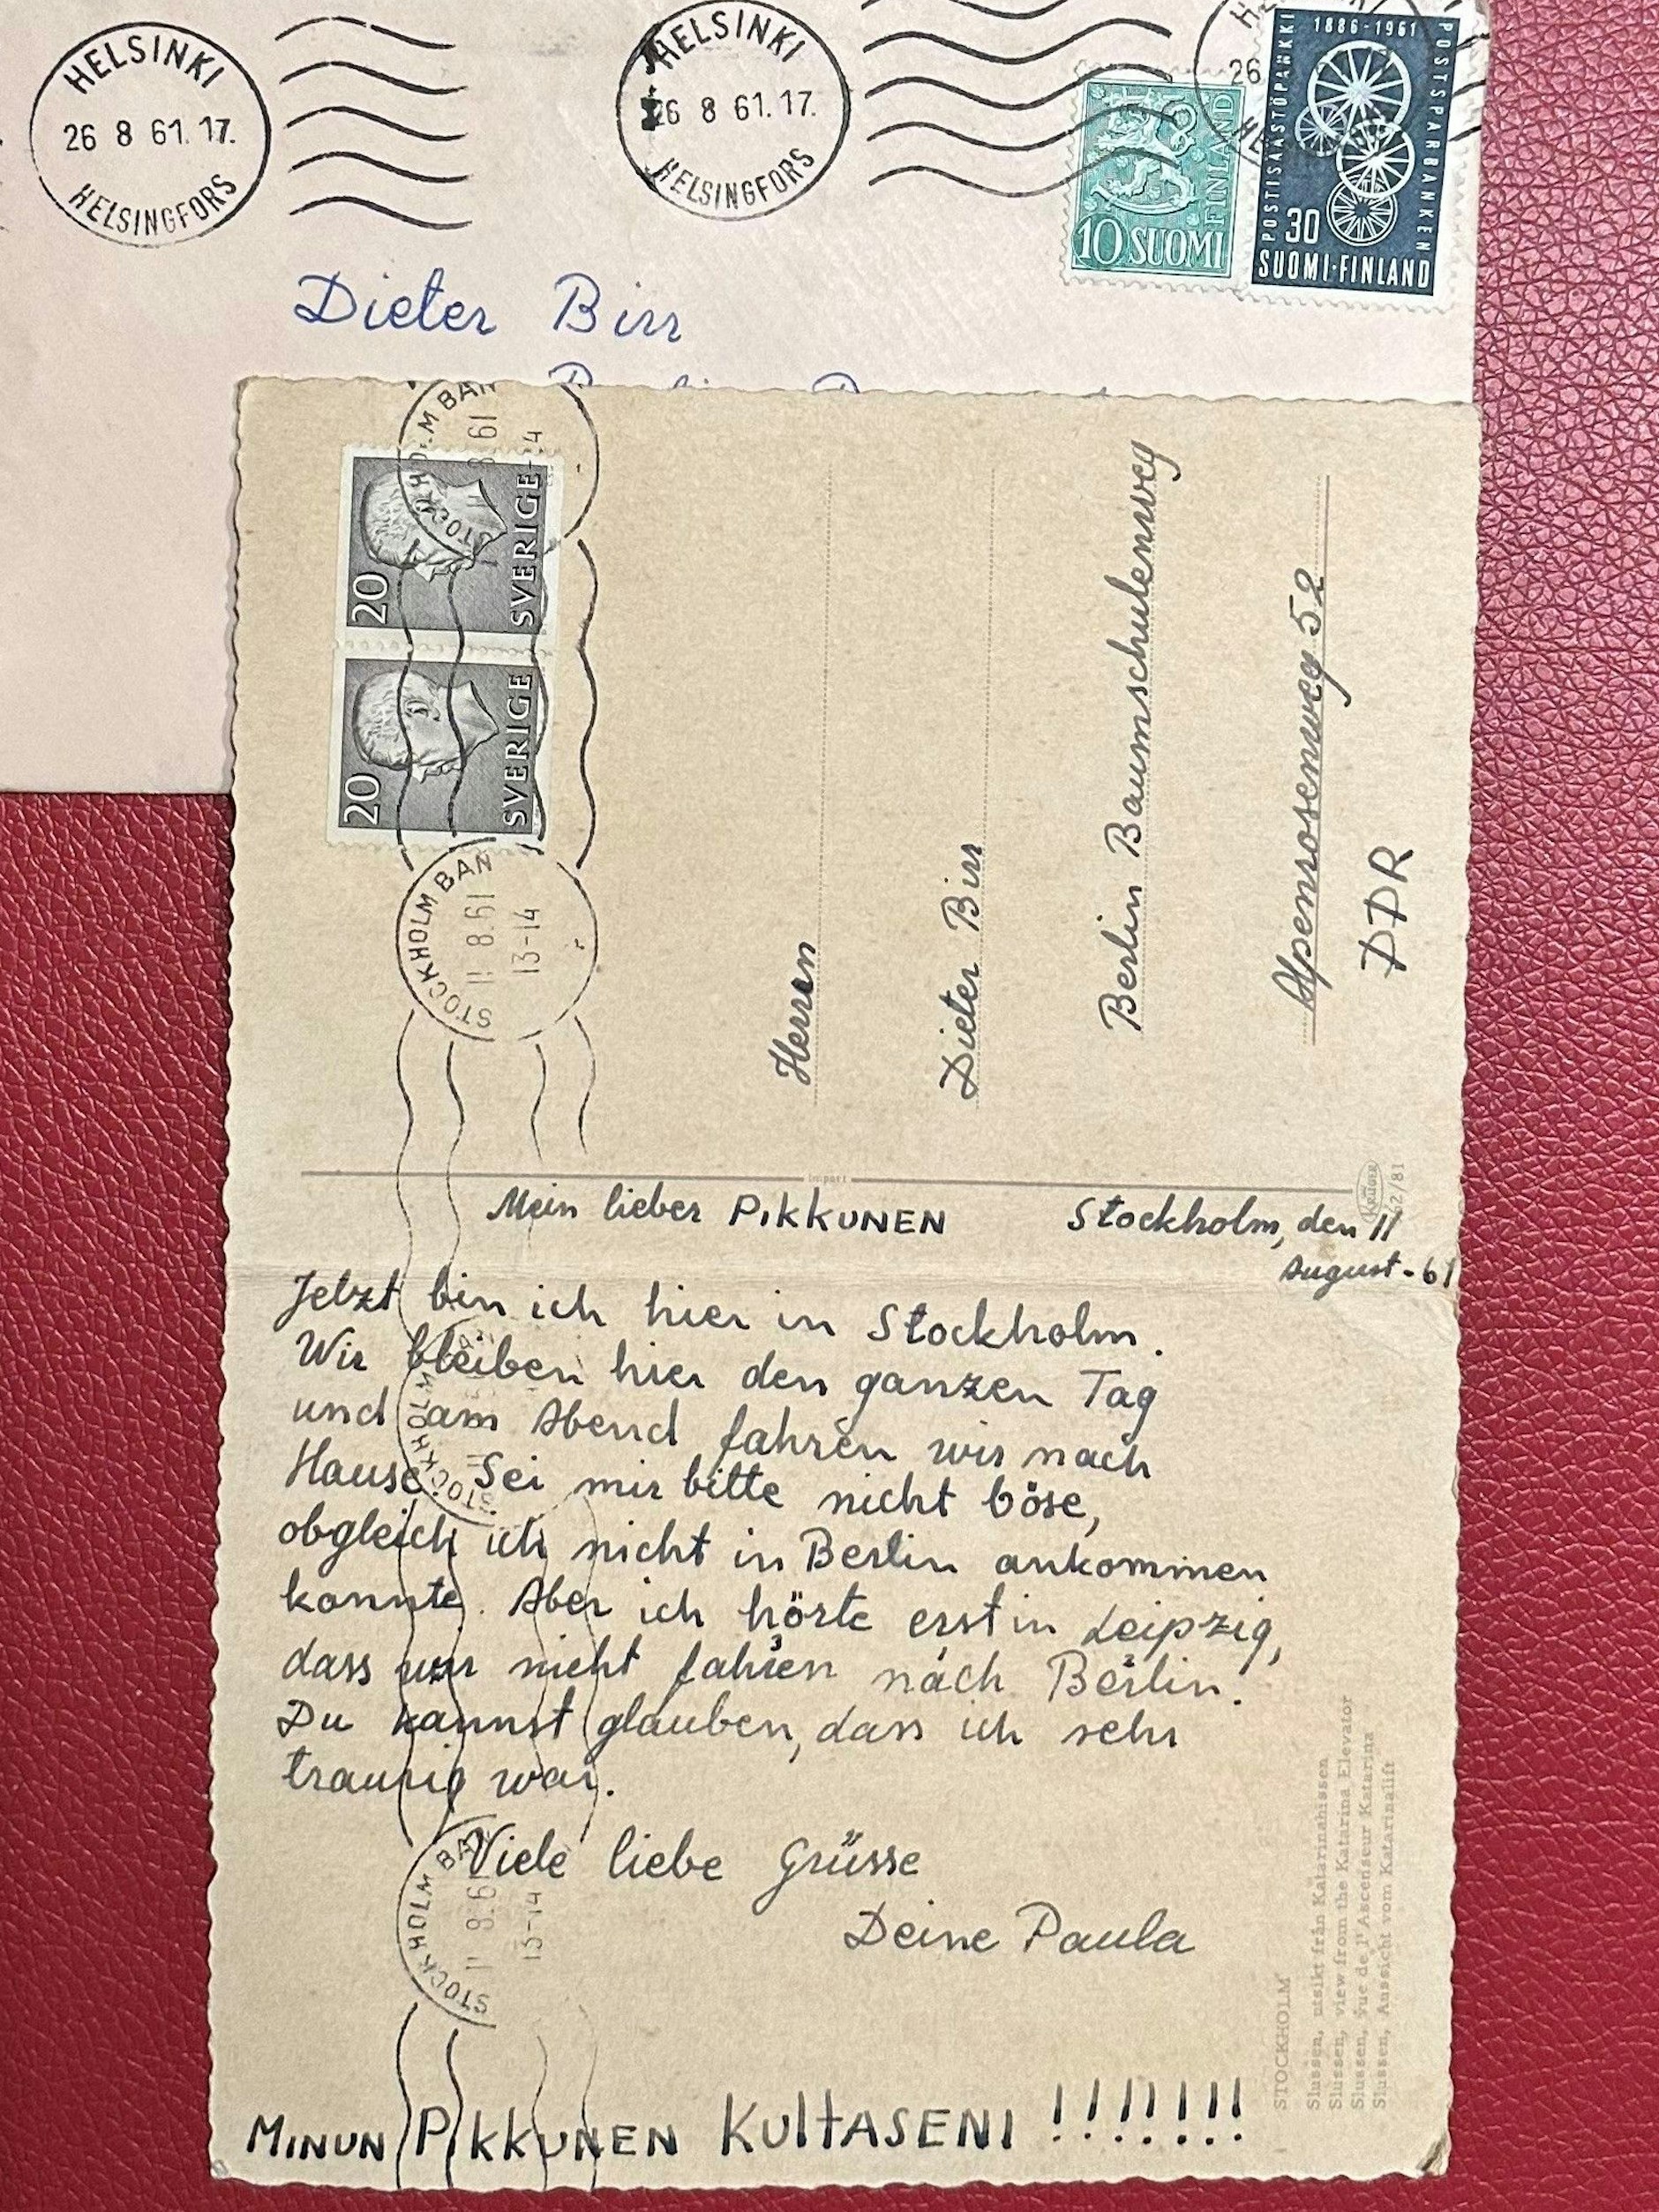 HELSINKI
26 8 61. 17.
HELSINGFORS
HELSINKI
26 8 61. 17.
HELSINGFORS
26
10 SUOMI
FINLAND
1886-1961
POSTISÄÄSTÖPANKKI
POSTSPARBANKEN
30
SUOMI-FINLAND
Dieter Birr
STOCKHOLM BAN
8.61
20
SVERIGE
20
SVERIGE
STOCKHOLM BAN
11 8.61
13-14
Herrn
Dieter Birr
Berlin Baumschulenweg
Alpenrosenweg 52
DDR
Import
KRÜGER
Mein lieber PIKKUNEN
Stockholm, den 11
August - 61
Jetzt bin ich hier in Stockholm.
Wir bleiben hier den ganzen Tag
und am Abend fahren wir nach
Hause. Sei mir bitte nicht böse,
obgleich ich nicht in Berlin ankommen
konnte. Aber ich hörte erst in Leipzig,
dass wir nicht fahren nach Berlin.
Du kannst glauben, dass ich sehr
traurig war.
Viele liebe Grüsse
Deine Paula
STOCKHOLM
11
STOCKHOLM BAN
11 8.61
13-14
STOCKHOLM
Slussen, utsikt från Katarinahissen
Slussen, view from the Katarina Elevator
Slussen, vue de l'Ascenseur Katarina
Slussen, Aussicht vom Katarinalift
MINUN PIKKUNEN KULTASENI !!!!!!!